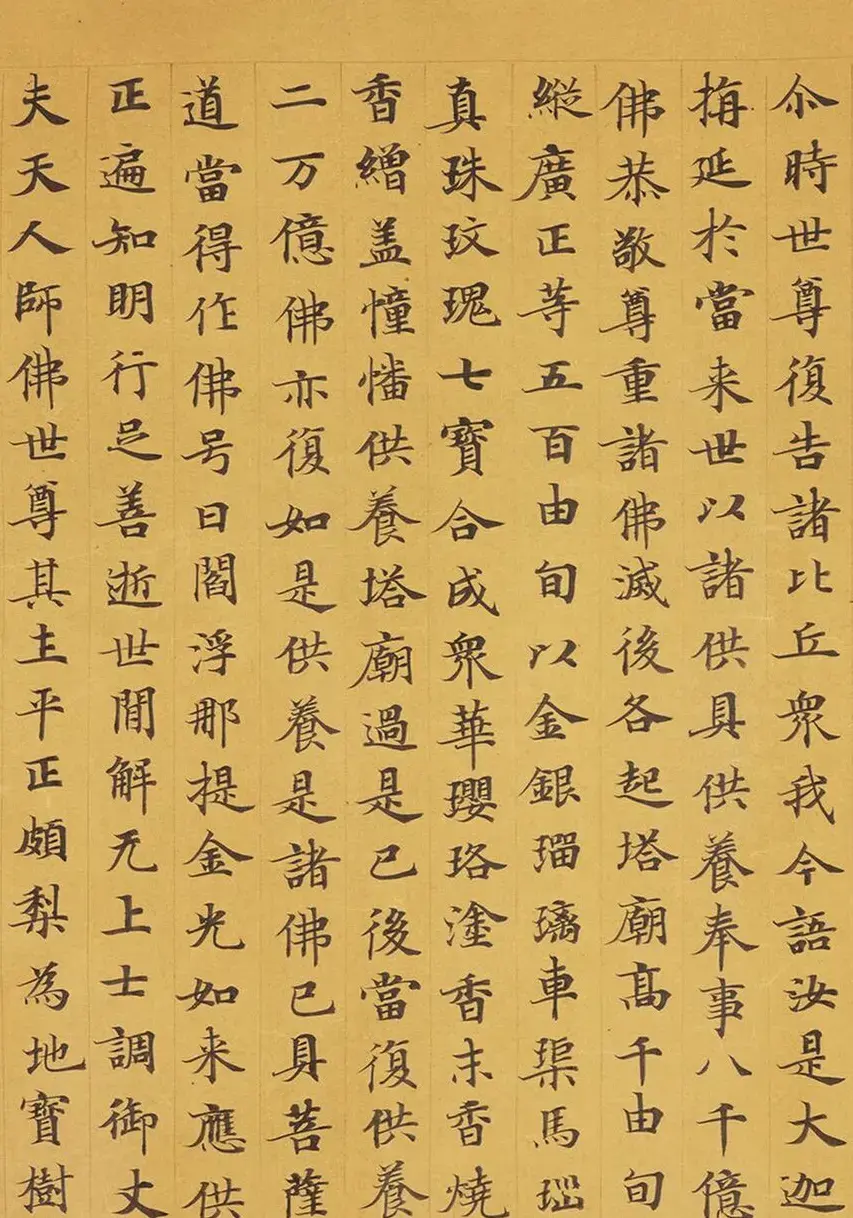 尒時世尊復告諸比丘衆我今語汝是大迦
旃延於當来世以諸供具供養奉事八千億
佛恭敬尊重諸佛滅後各起塔廟髙千由旬
縱廣正䓁五百由旬以金銀瑠璃車𤧫馬瑙
真珠玫瑰七寶合成衆華瓔珞塗香末香燒
香繒盖幢幡供養塔廟過是已後當復供養
二万億佛亦復如是供養是諸佛已具菩薩
道當得作佛号曰閻浮那提金光如来應供
正遍知明行足善逝世間解无上士調御丈
夫天人師佛世尊其土平正頗梨為地寶樹